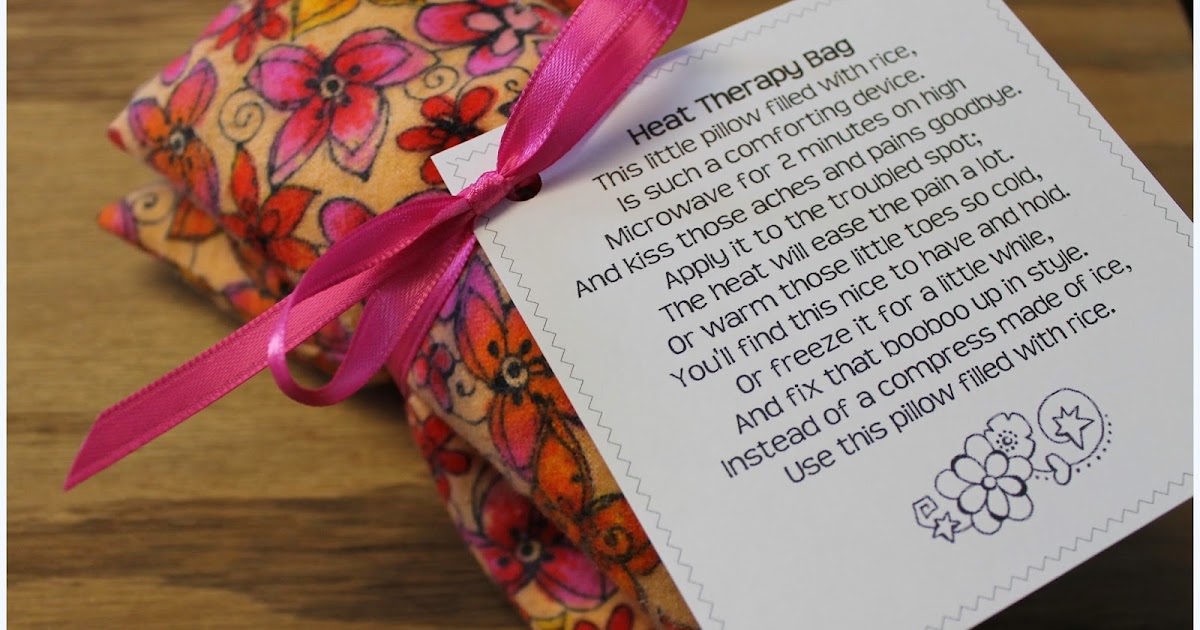 Heat Therapy Bag
This little pillow filled with rice,
Is such a comforting device.
Microwave for 2 minutes on high
And kiss those aches and pains goodbye.
Apply it to the troubled spot;
The heat will ease the pain a lot.
Or warm those little toes so cold,
You'll find this nice to have and hold.
Or freeze it for a little while,
And fix that booboo up in style.
Instead of a compress made of ice,
Use this pillow filled with rice.